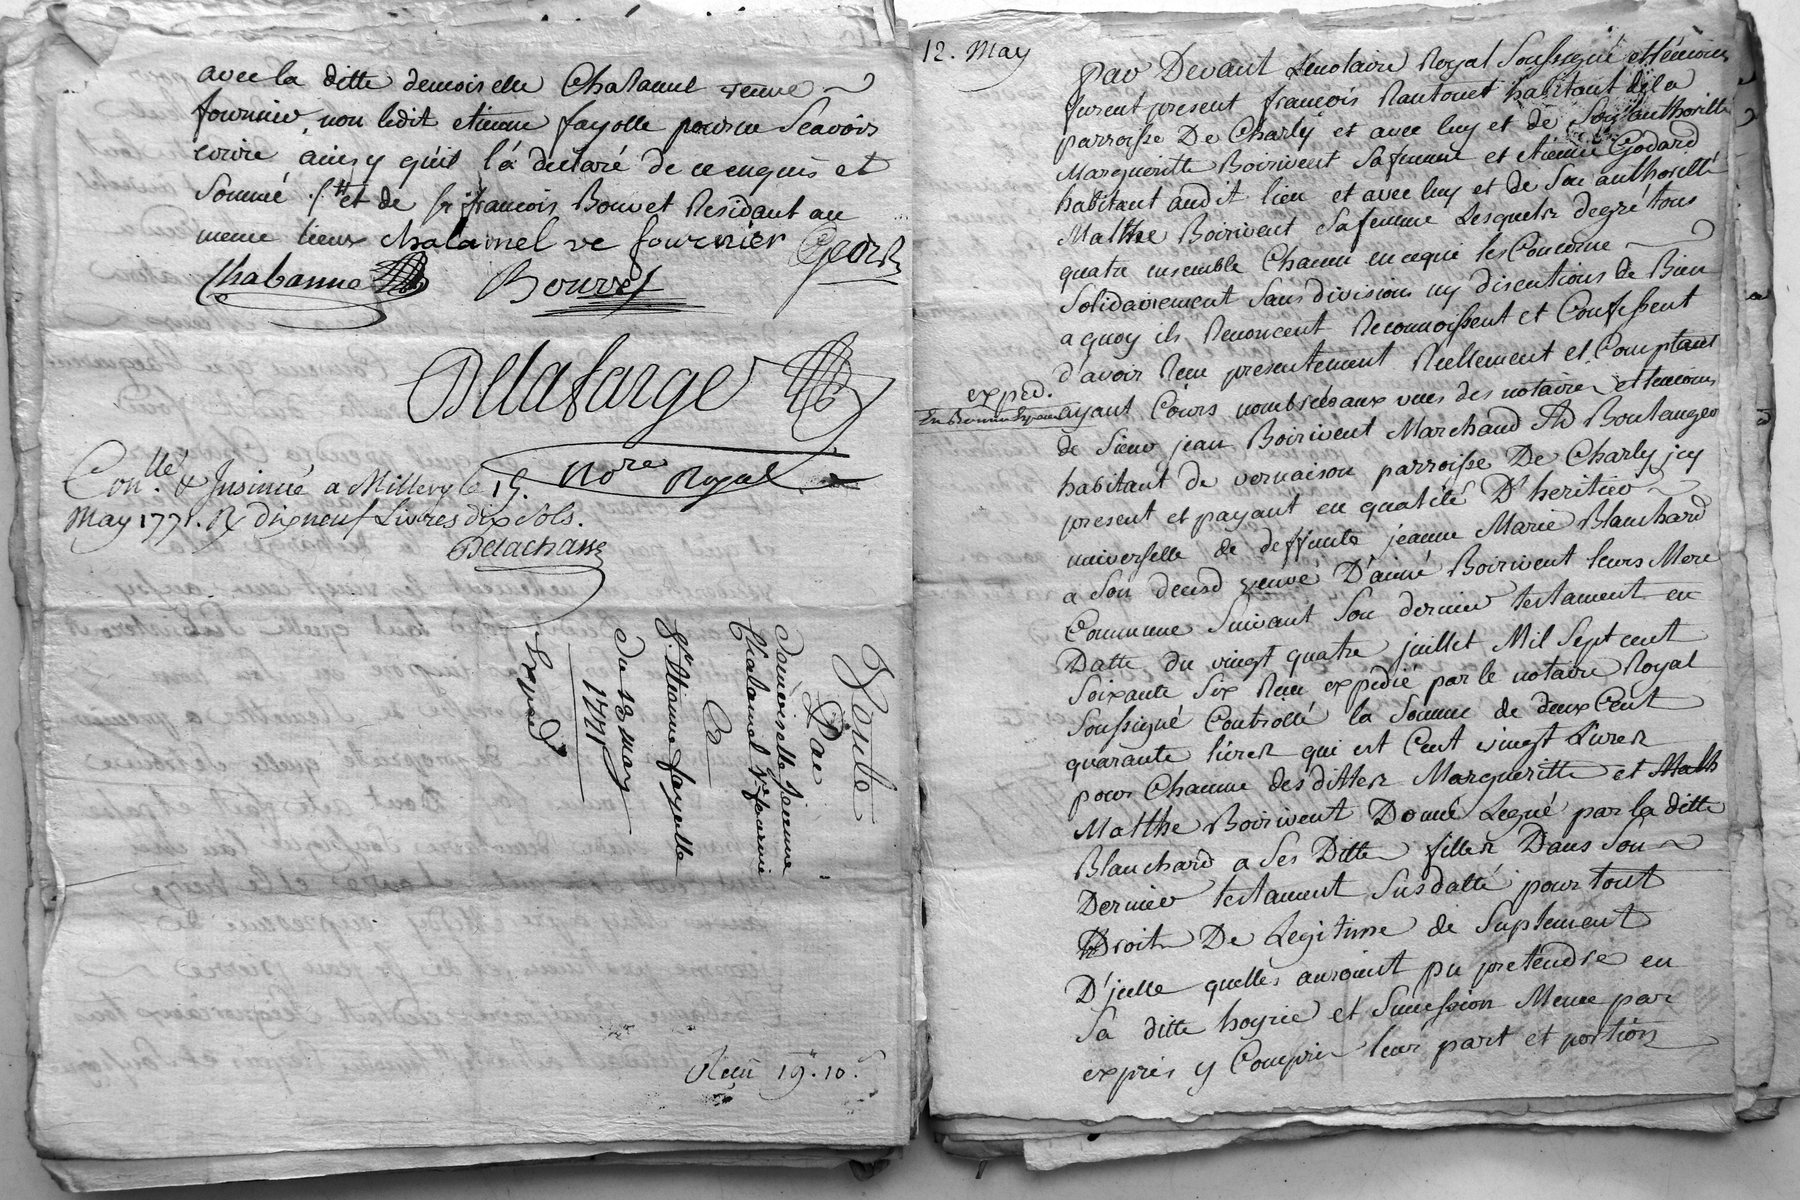 avec la ditte demoiselle Chalamel veuve
fournier, non ledit etienne fayolle pour ne Scavoir
ecrire ainsy qu'il l'a declaré de ce enquis et
Sommé et de Sr françois Bouvet Residant au
meme lieux chalamel ve fournier
Chabanne Bouvet
Delafarge
Nore Royal
Conllé. & Insinué a Millery le 19.
May 1771. R dix neuf Livres dix sols.
Delachasse
Vente
Par
Damoiselle Jeanne
Chalamel Ve fournier
A
St. Etienne fayolle
Du 13 may
1771
Expedié
Reçu 19.10.s
12. May
par Devant Lenotaire Royal Soussigné et témoins
furent present françois Nantouet habitant de la
parroisse De Charly et avec luy et de Son authorité
Margueritte Boirivent Safemme et etienne Godard
habitant audit lieu et avec luy et de Son authorité
Matthe Boirivent Safemme Lesquels de gré tous
quatre ensemble Chacun en ceque les Concerne
Solidairement Sans divisions ny discutions de Bien
a quoy ils Renoncent Reconnoissent et Confessent
d'avoir Reçu presentement Reellement et Comptant
exped.
ayant Cours nombrés aux vues des notaire et temoins
de Sieur jean Boirivent Marchand Boulanger
habitant de vernaison parroisse De Charly icy
present et payant en qualité D'heritier
universelle de deffunte jeanne Marie Blanchard
a Son deced veuve D'aimé Boirivent leurs Mere
Commune Suivant Son dernier testament en
Datte du vingt quatre juillet Mil Sept cent
Soixante Six Reçu expedié par le notaire Royal
Soussigné Controllé la Somme de deux Cent
quarante livres qui est Cent vingt Livres
pour Chacune desdittes Margueritte et Math
Matthe Boirivent Donné Legué par la ditte
Blanchard a Ses Ditte filles Dans Son
Dernier testament Susdatté pour tout
Droits De Legitime de Suplement
D'jcelle quelles auroient pu pretendre en
Sa ditte hoyrie et Succession Meme par
exprés y Compris leur part et portion